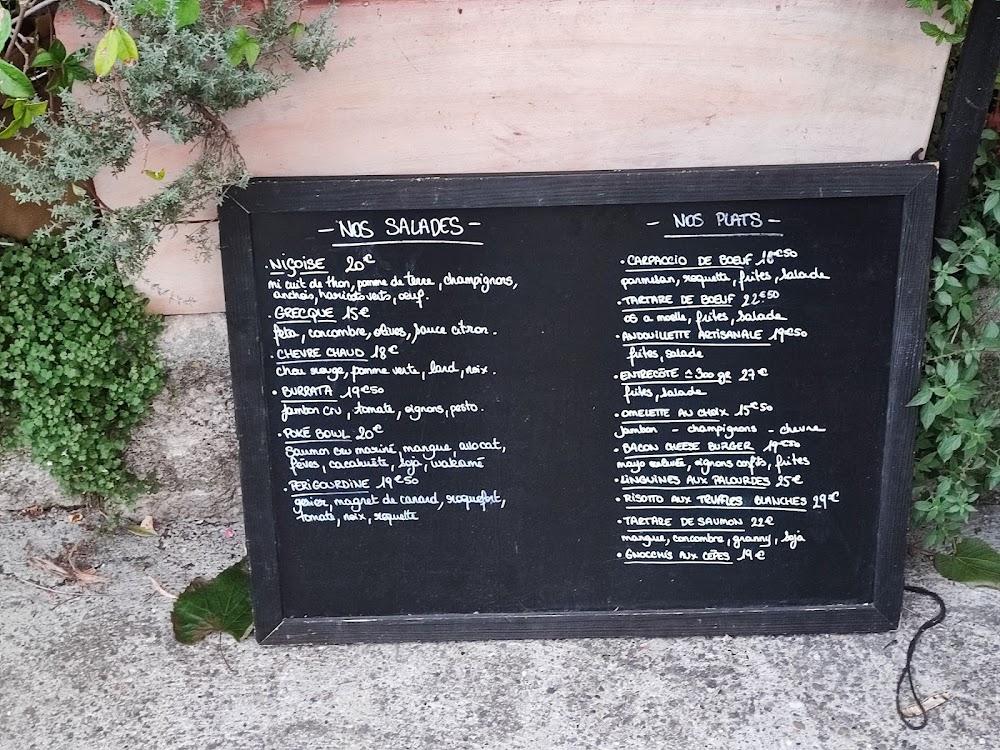 - NOS SALADES -
. NIÇOISE 20€
mi cuit de thon, pomme de terre, champignons,
anchois, haricots verts, oeuf.
. GRECQUE 15€
feta, concombre, olives, sauce citron.
. CHEVRE CHAUD 18€
chou rouge, pomme verte, lard, noix.
. BURRATA 19€50
jambon cru, tomate, oignons, pesto.
. POKÉ BOWL 20€
saumon cru mariné, mangue, avocat,
fèves, cacahuète, soja, wakamé
. PERIGOURDINE 19€50
gesier, magret de canard, roquefort,
tomate, noix, roquette
- NOS PLATS -
. CARPACCIO DE BOEUF 18€50
parmesan, roquette, frites, salade
. TARTARE DE BOEUF 22€50
os a moelle, frites, salade
. ANDOUILLETTE ARTISANALE 19€50
frites, salade
. ENTRECÔTE ± 300 gr 27€
frites, salade
. OMELETTE AU CHOIX 15€50
jambon - champignons - chevre
. BACON CHEESE BURGER 19€50
mayo, oignons confits, frites
. LINGUINES AUX PALOURDES 25€
. RISOTTO AUX TRUFFES BLANCHES 29€
. TARTARE DE SAUMON 22€
mangue, concombre, granny, soja
. GNOCCHIS AUX CÈPES 19€